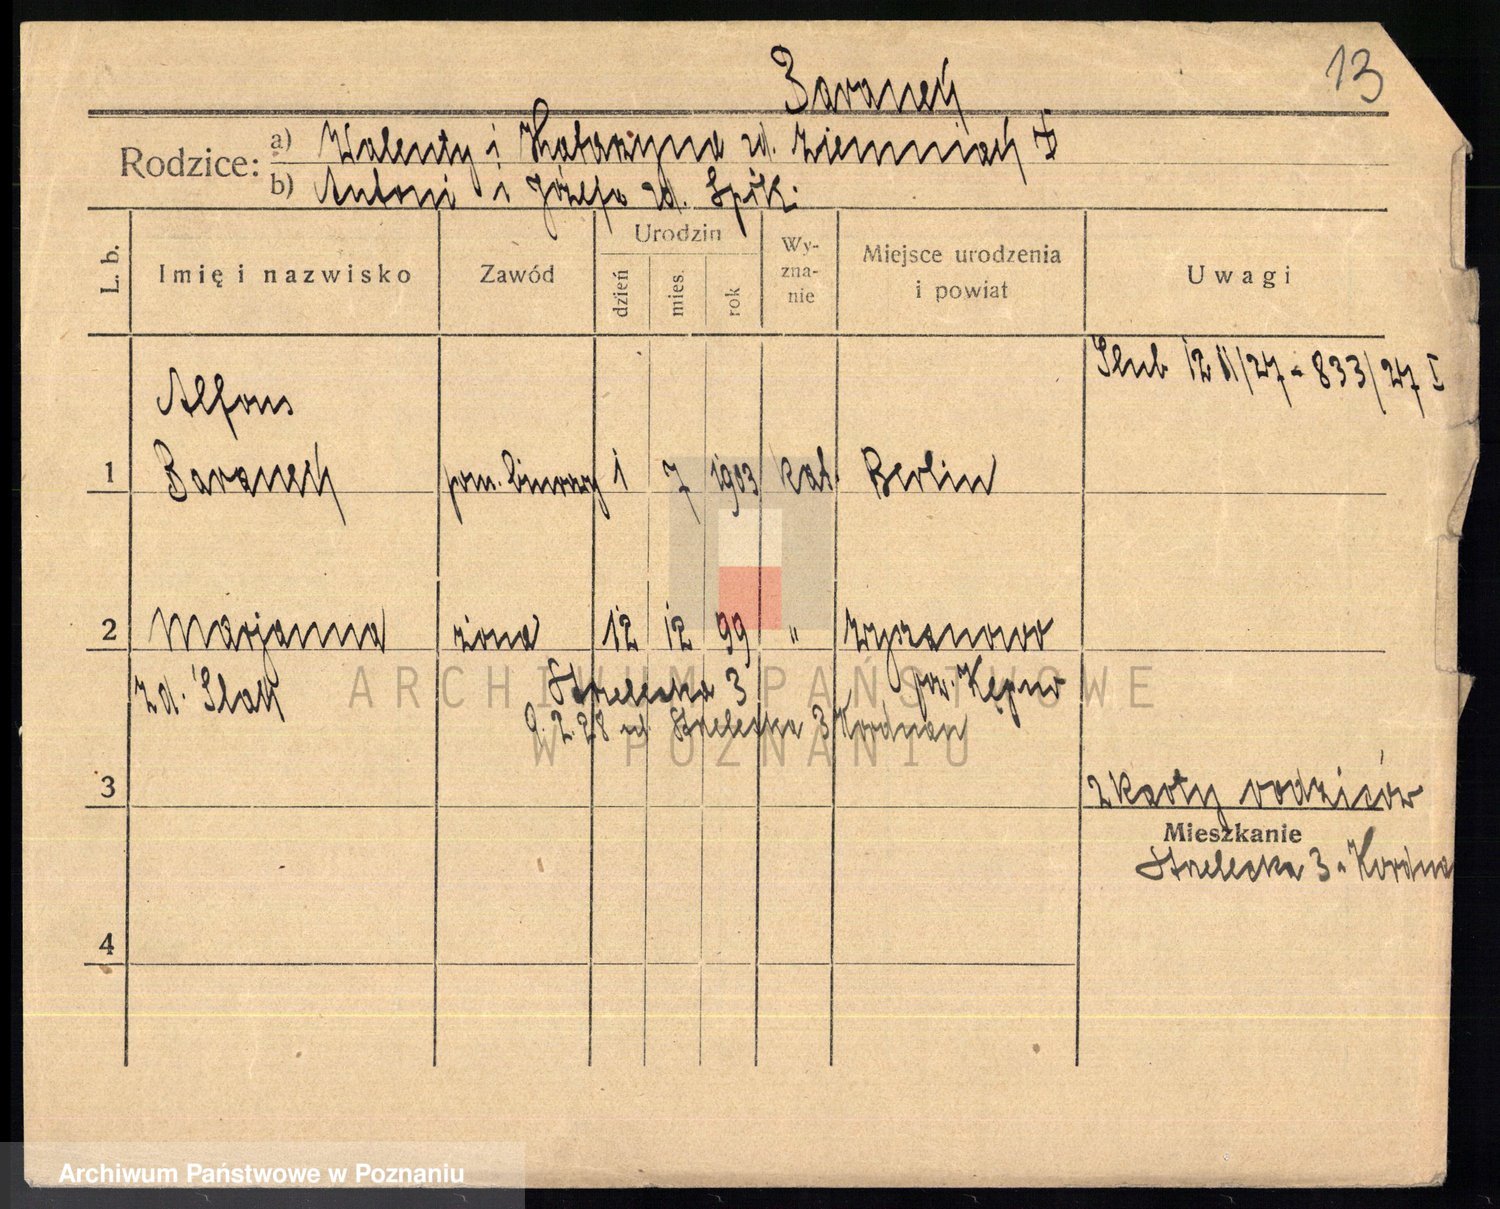 13
Baranek
Rodzice: a) Walenty i Katarzyna zd. Ziemniak
b) Antoni i Józefa zd. Spik.
L. b.
Imię i nazwisko
Zawód
Urodzin
dzień
mies.
rok
Wy-
zna-
nie
Miejsce urodzenia
i powiat
Uwagi
Ślub 12 II/27 - 833/27 I
Alfons
1 Baranek pom. biurowy 1 7 1903 kat. Berlin
2 Marjanna żona 12 12 99 " 
zd. Ślak Strzelecka 3 pow. Kępno
9.2.28 Strzelecka 3 Kordnan
ARCHIWUM PAŃSTWOWE
W POZNANIU
3
z karty rodziców
Mieszkanie
Strzelecka 3 - Kordna
4
Archiwum Państwowe w Poznaniu